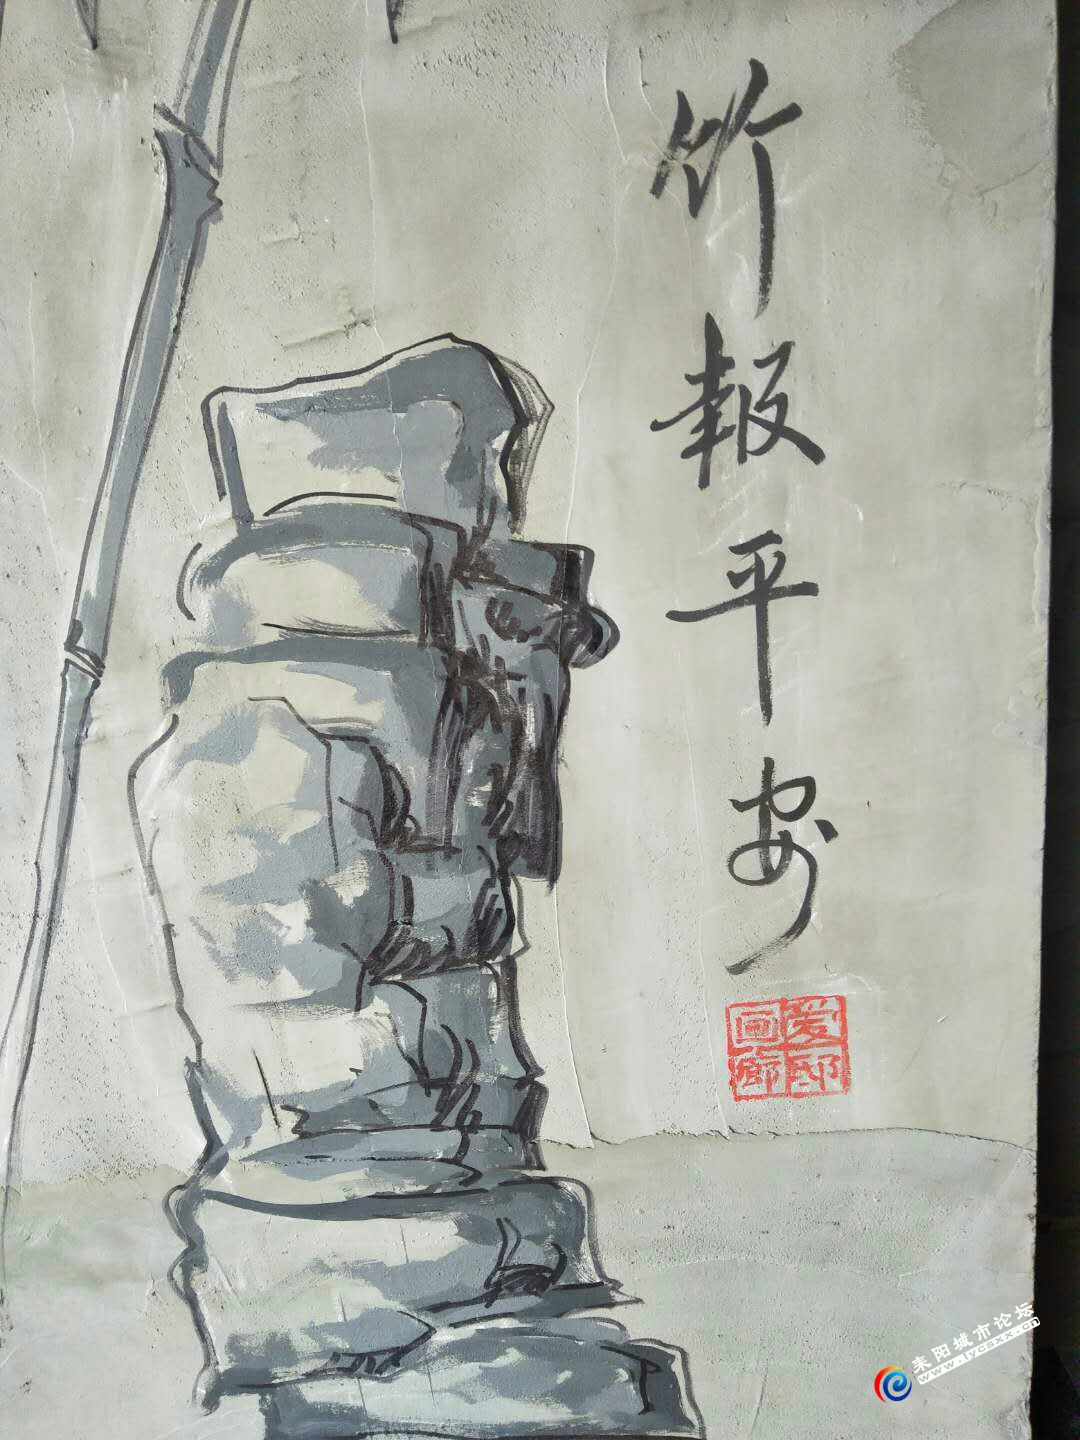 竹報平安
爱邱
画廊
耒阳城市论坛
www.lycsxx.cn